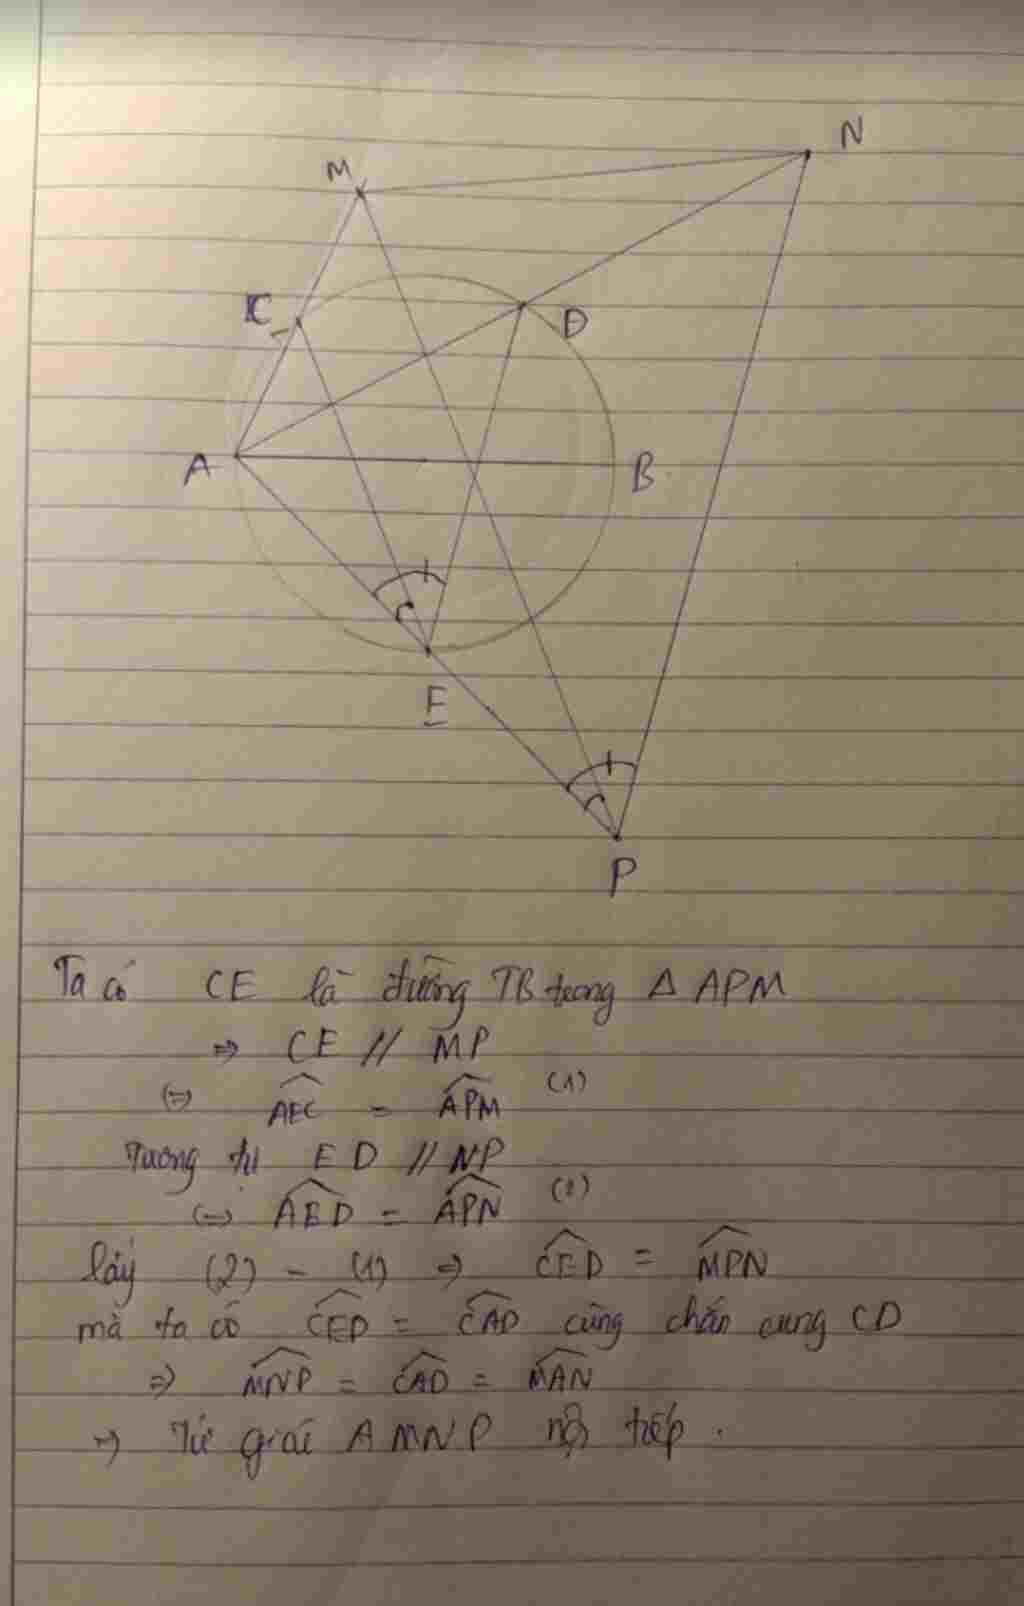 M
N
C
D
A
B
E
P
Ta có CE là đường TB trong Δ APM
=> CE // MP
(=) AEC = APM (1)
Tương tự ED // NP
(=) AED = APN (2)
lấy (2) - (1) => CED = MPN
mà ta có CED = CAD cùng chắn cung CD
=> MNP = CAD = MAN
=> Tứ giác AMNP nội tiếp.